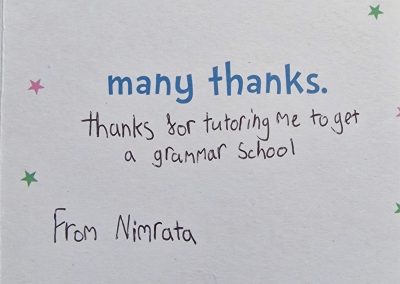 many thanks.
Thanks for tutoring me to get
a grammar school
From Nimrata